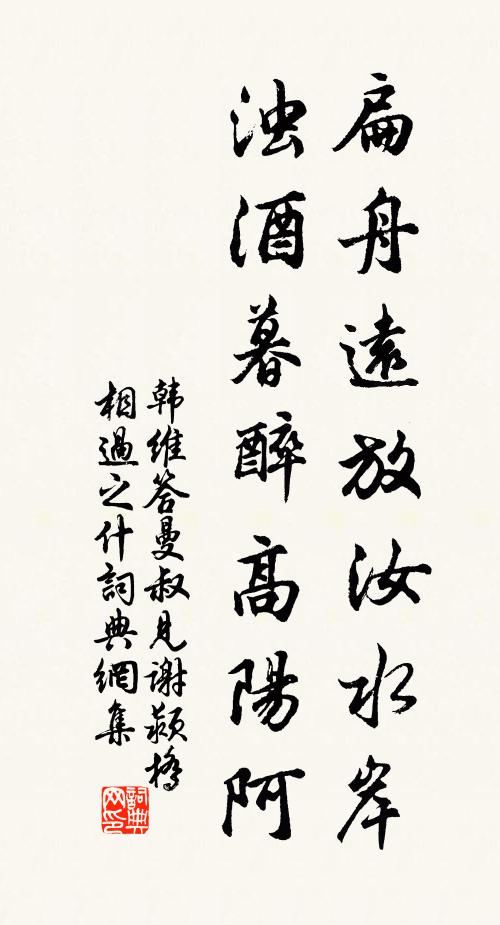 扁舟遠放汝水岸
浊酒暮醉高陽阿
韩维答曼叔見谢蘋橋
相過之什詞典網集
詞典
网印